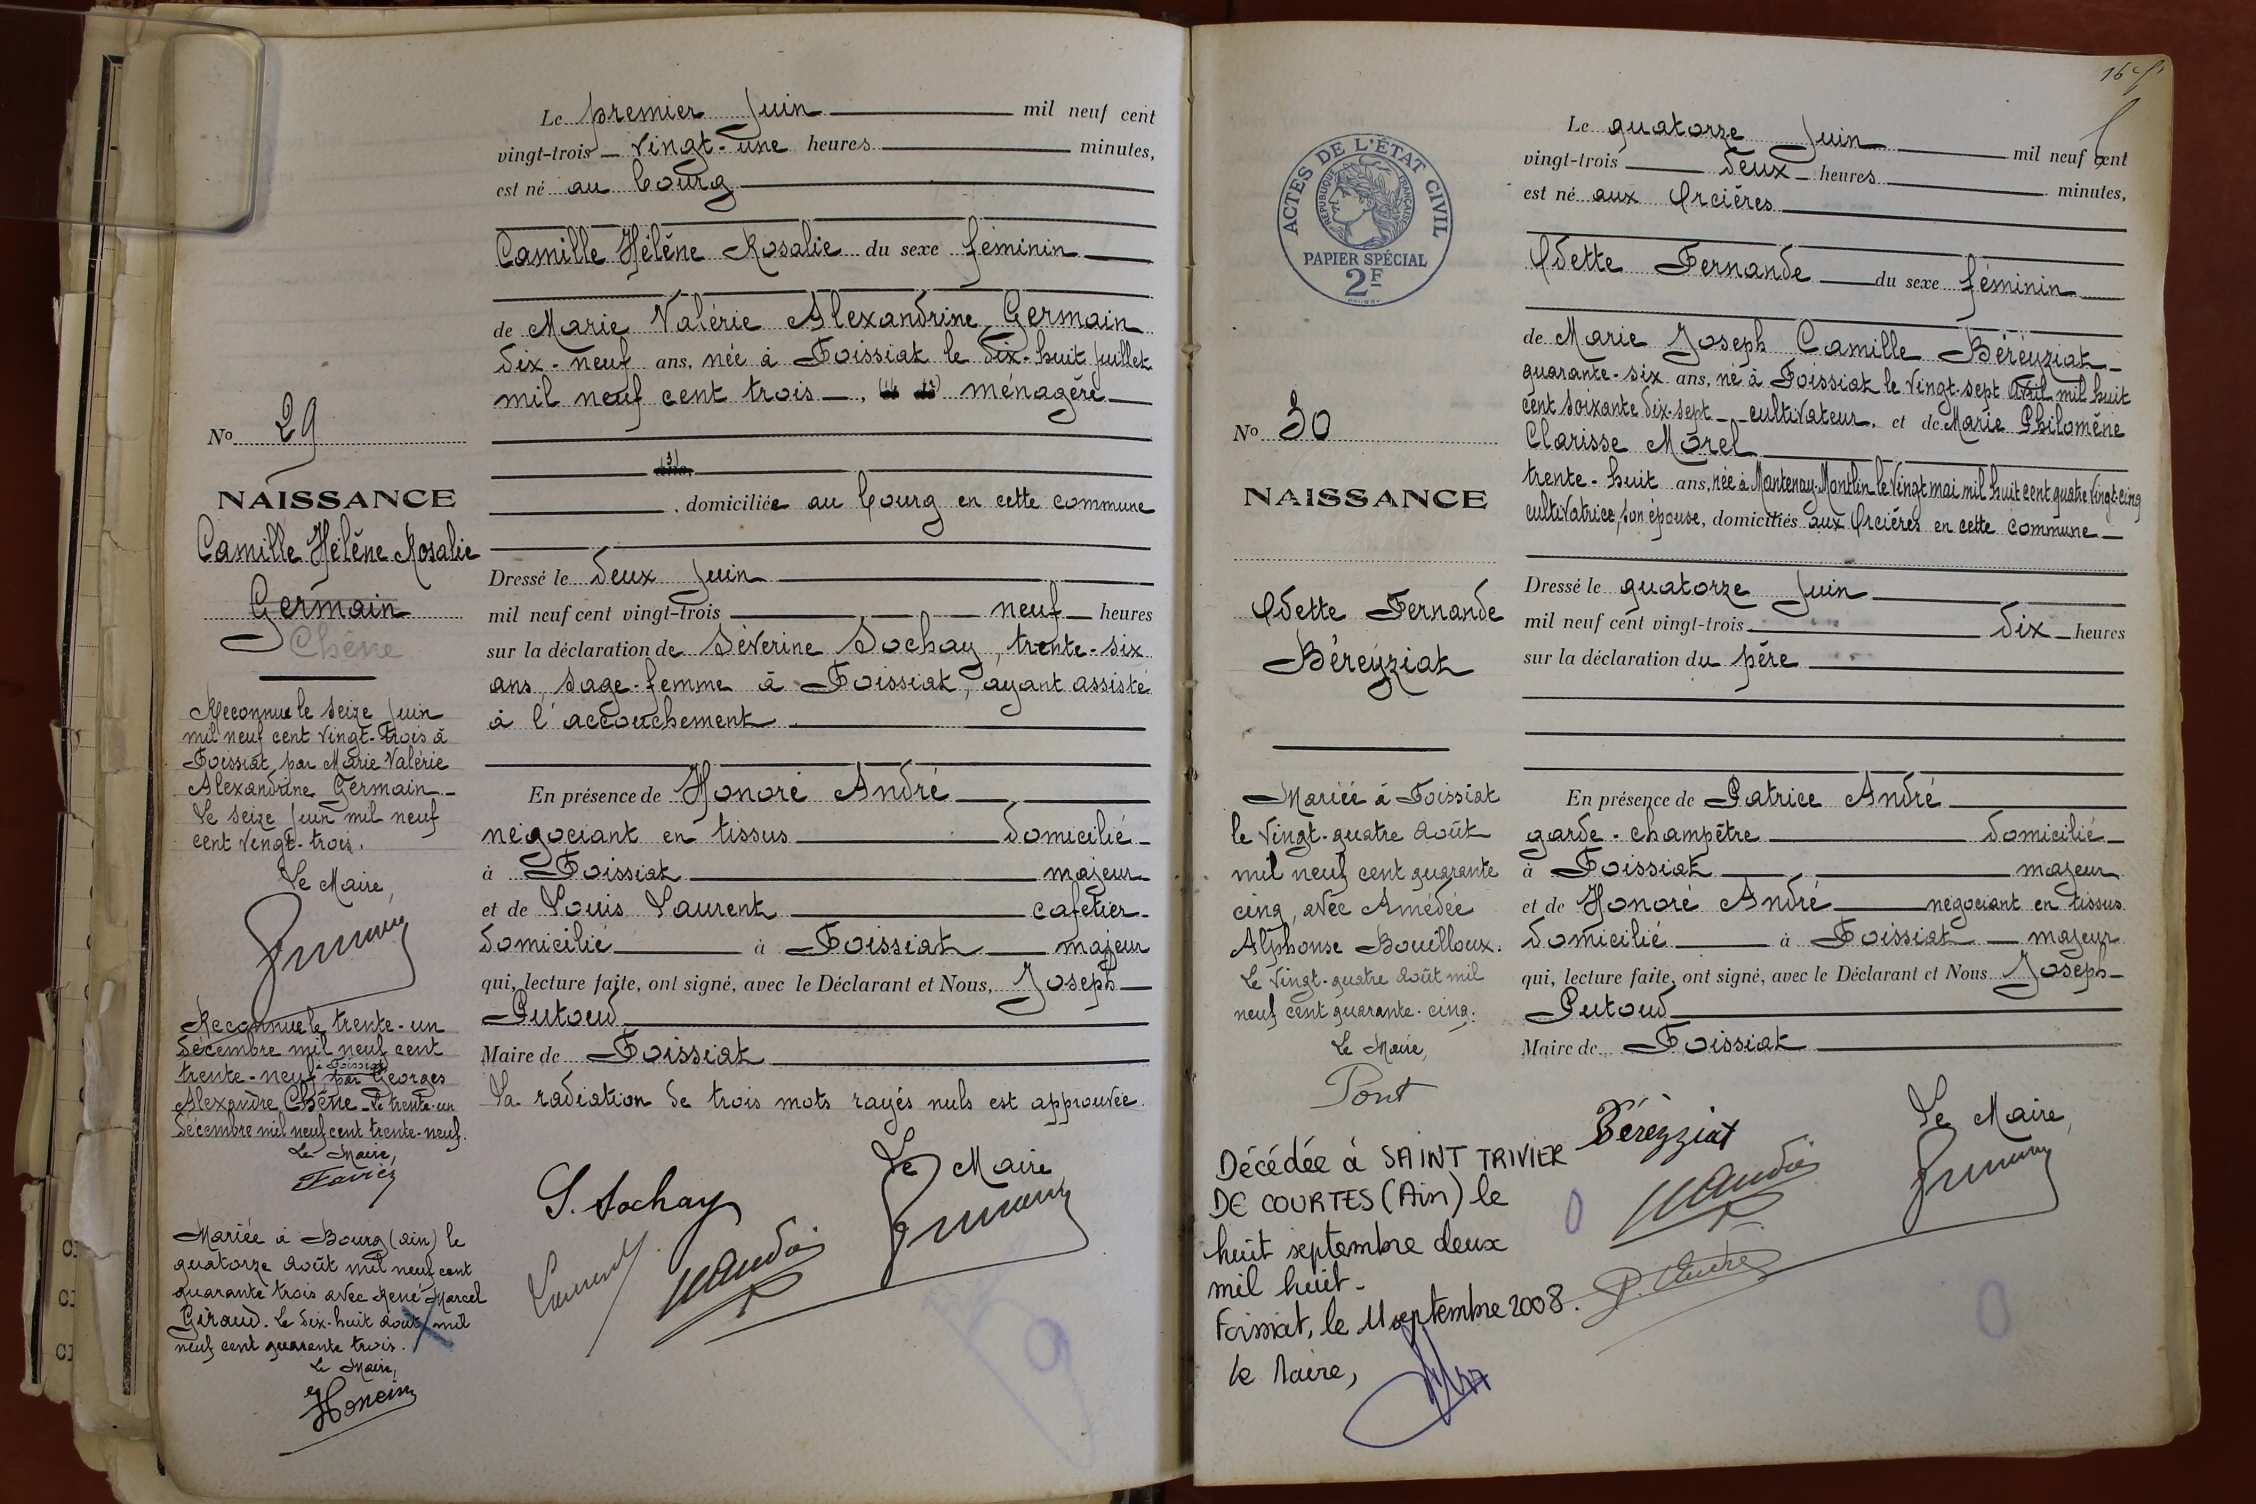 Le premier Juin mil neuf cent
vingt-trois vingt-une heures minutes,
est né au bourg
Camille Hélène Rosalie du sexe féminin
de Marie Valérie Alexandrine Germain
dix-neuf ans, née à Foissiat le dix-huit Juillet
mil neuf cent trois, ménagère
domiciliée au bourg en cette commune
Dressé le deux Juin
mil neuf cent vingt-trois neuf heures
sur la déclaration de Séverine Sochay, trente-six
ans, sage-femme à Foissiat, ayant assisté
à l'accouchement
En présence de Honoré André
négociant en tissus domicilié
à Foissiat majeur
et de Louis Laurent cafetier
domicilié à Foissiat majeur
qui, lecture faite, ont signé, avec le Déclarant et Nous, Joseph
Putoud
Maire de Foissiat
La radiation de trois mots rayés nuls est approuvée.
Le Maire
S. Sochay
Laurent
No 29
NAISSANCE
Camille Hélène Rosalie
Germain
Chêne
Reconnue le seize Juin
mil neuf cent vingt-trois à
Foissiat par Marie Valérie
Alexandrine Germain
Le seize Juin mil neuf
cent vingt-trois.
Le Maire,
Reconnue le trente-un
décembre mil neuf cent
trente-neuf à Foissiat par Georges
Alexandre Chêne. Le trente-un
décembre mil neuf cent trente-neuf.
Le Maire,
Mariée à Bourg (Ain) le
quatorze août mil neuf cent
quarante trois avec René Marcel
Giraud. Le dix-huit août mil
neuf cent quarante trois.
Le Maire,
ACTES DE L'ÉTAT CIVIL
RÉPUBLIQUE FRANÇAISE
PAPIER SPÉCIAL
2F
Le quatorze Juin mil neuf cent
vingt-trois deux heures minutes,
est né aux Orcières
Odette Fernande du sexe féminin
de Marie Joseph Camille Béréyziat
quarante-six ans, né à Foissiat le vingt-sept avril mil huit
cent soixante dix-sept cultivateur, et de Marie Philomène
Clarisse Morel
trente-huit ans, née à Mantenay-Montlin le vingt mai mil huit cent quatre vingt-cinq
cultivatrice, son épouse, domiciliés aux Orcières en cette commune
Dressé le quatorze Juin
mil neuf cent vingt-trois dix heures
sur la déclaration du père
En présence de Patrice André
garde-champêtre domicilié
à Foissiat majeur
et de Honoré André négociant en tissus
domicilié à Foissiat majeur
qui, lecture faite, ont signé, avec le Déclarant et Nous Joseph
Putoud
Maire de Foissiat
Le Maire,
Béréyziat
P. André
No 30
NAISSANCE
Odette Fernande
Béréyziat
Mariée à Foissiat
le vingt-quatre août
mil neuf cent quarante
cinq, avec Amédée
Alphonse Bouilloux.
Le vingt-quatre août mil
neuf cent quarante-cinq.
Le Maire,
Pont
Décédée à SAINT TRIVIER
DE COURTES (Ain) le
huit septembre deux
mil huit.
Foissiat, le 11 septembre 2008.
Le Maire,